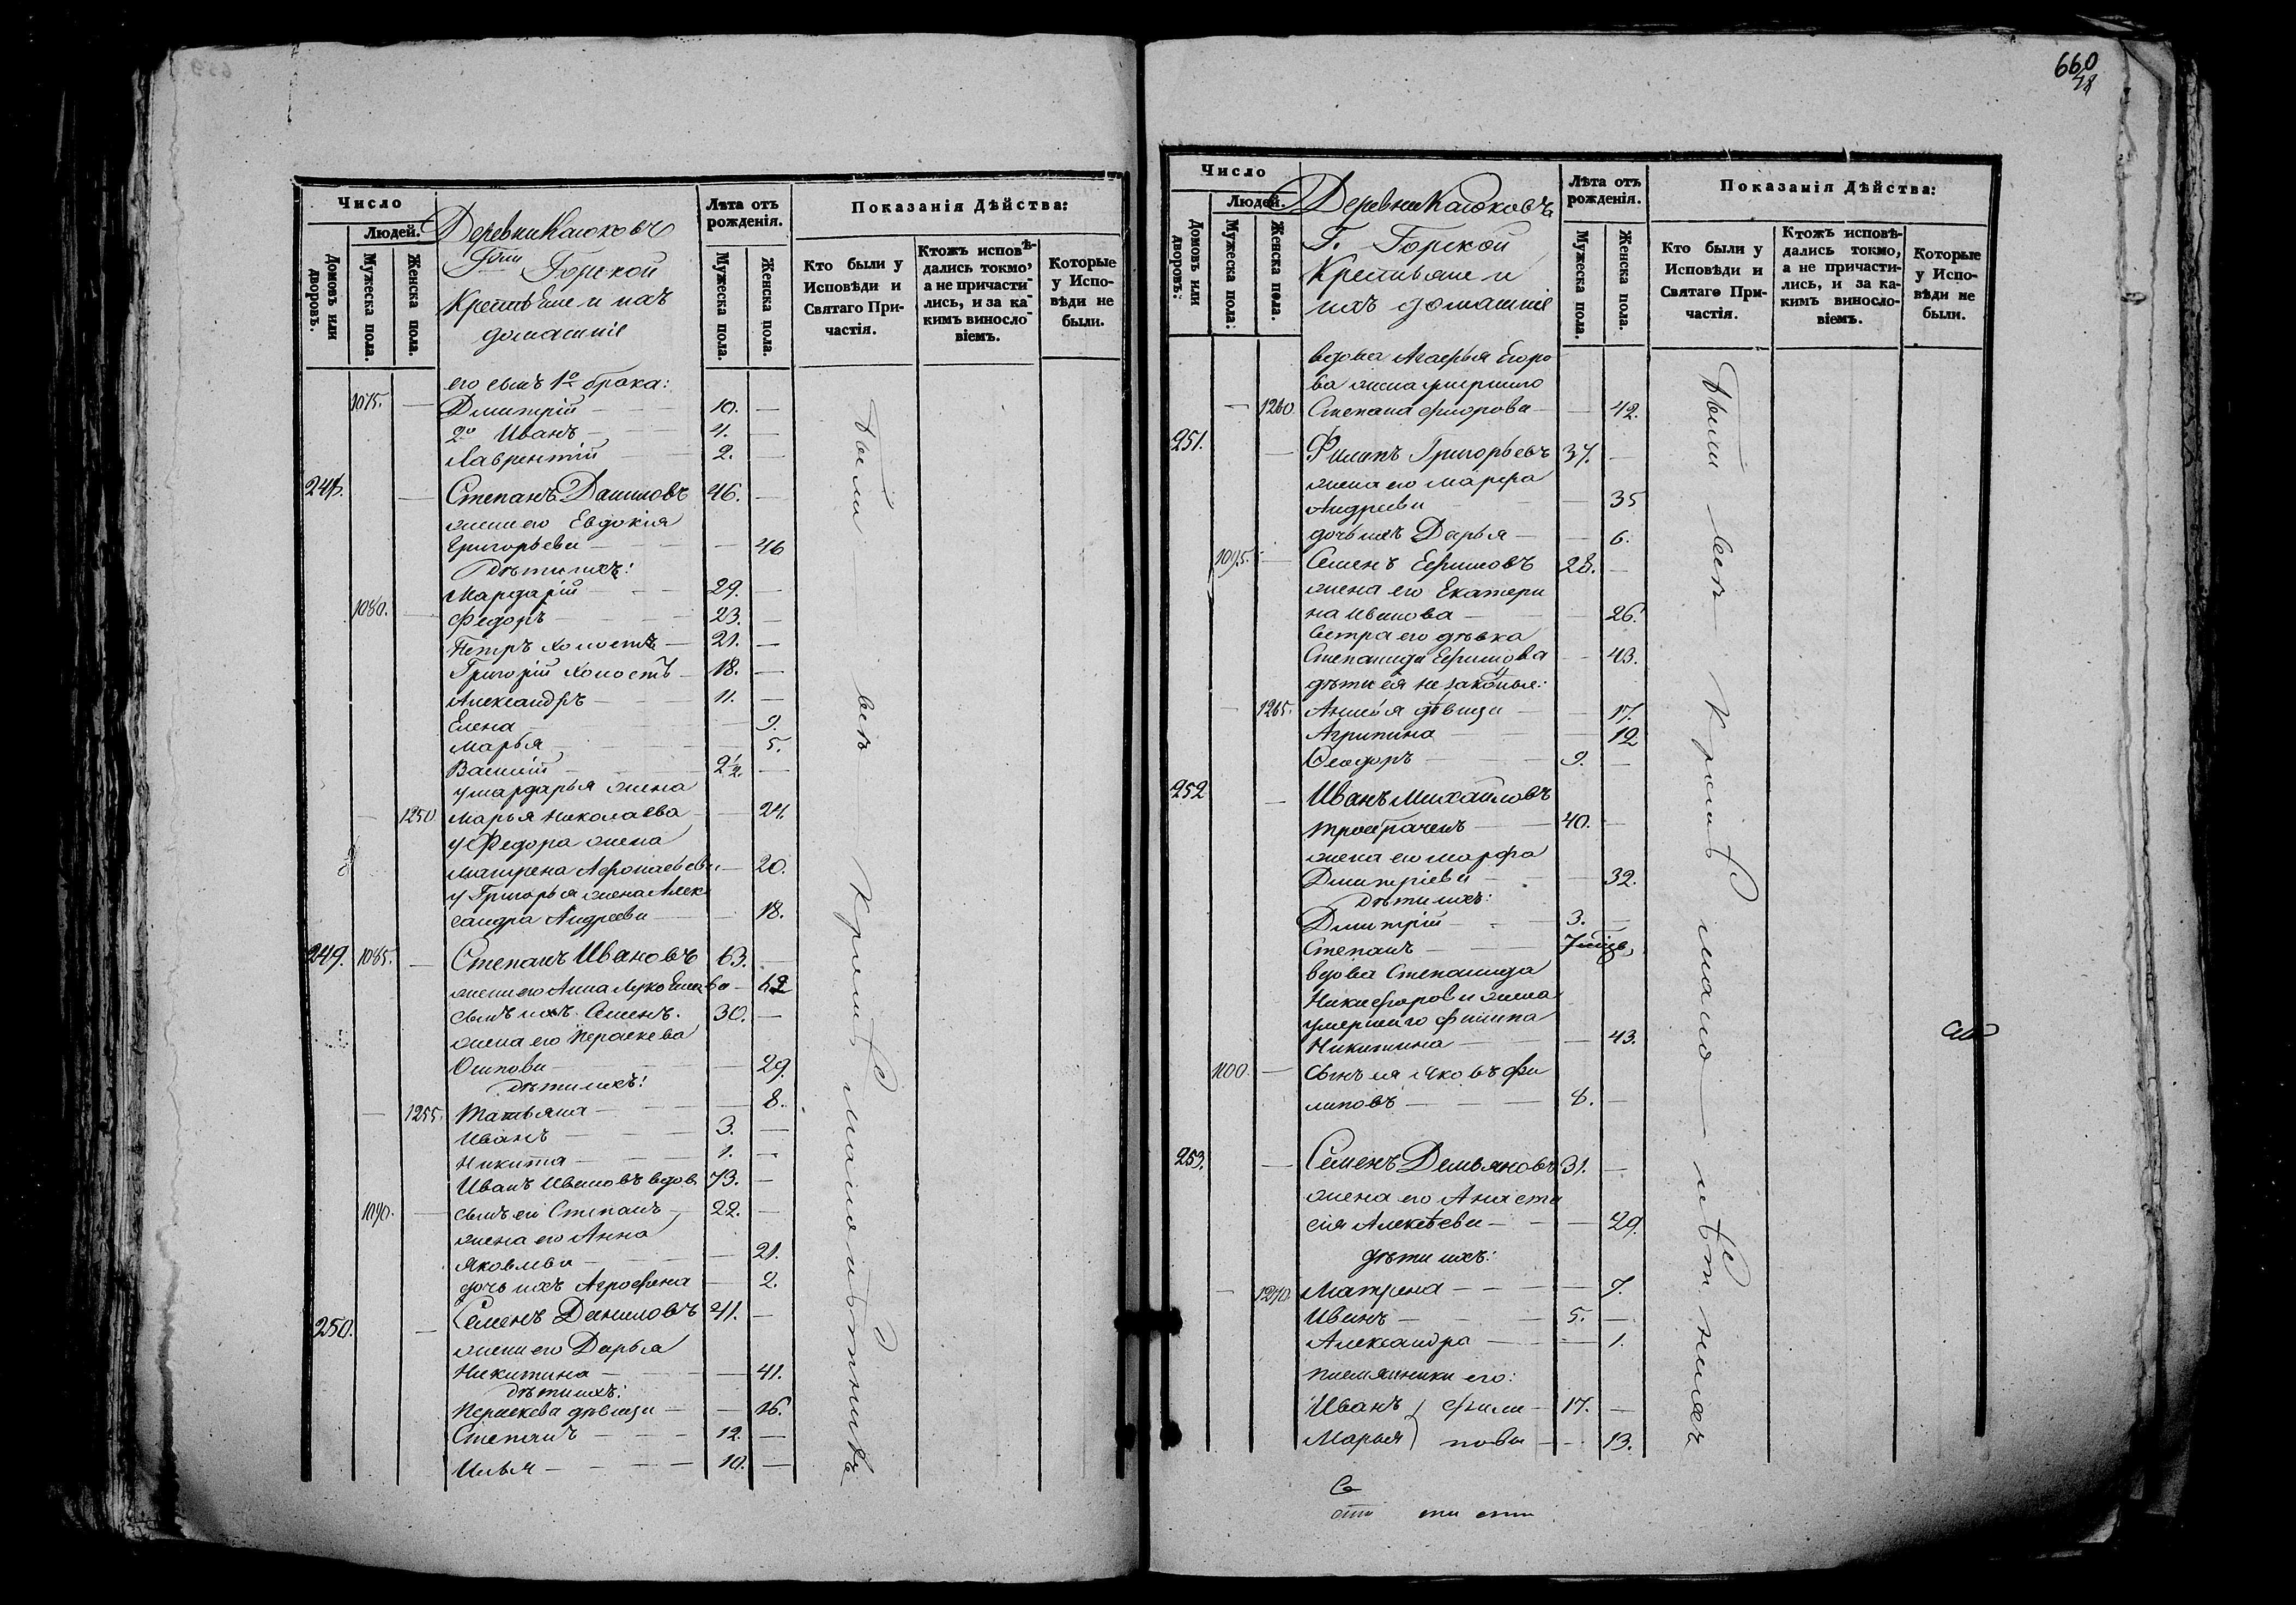 Число
Людей.
Домовъ или дворовъ.
Мужеска пола.
Женска пола.
Деревни
Горской
Крестьяне и ихъ
домашніе
Лѣта отъ рожденія.
Мужеска пола.
Женска пола.
Показанія Дѣйства:
Кто были у Исповѣди и Святаго Причастія.
Ктожъ исповѣдались токмо, а не причастились, и за какимъ винословіемъ.
Которые у Исповѣди не были.
его сынъ 1го брака:
1075. — Дмитрій — 10. —
2го Иванъ — 4. —
Лаврентій — 2. —
— Степанъ Даниловъ 46. —
жена его Евдокія
Григорьева — — 46
Дѣти ихъ:
Мардарій — 29. —
1080. — Федоръ — 23. —
Петръ холостъ — 21. —
Григорій холостъ — 18. —
Александръ — 11. —
Елена — 9.
Марья — 5.
Василій — 2 1/2. —
у Мардарья жена
— 1250 Марья Николаева — 24.
у Федора жена
Матрена — 20.
у Григорья жена Алек
сандра Андреева — 18.
249. 1085. — Степанъ Ивановъ 63. —
жена его Анна — 62
сынъ ихъ Семенъ. 30. —
жена его Параскева
Осипова — 29.
Дѣти ихъ:
— 1255. Татьяна — 8.
Иванъ — 3. —
Никита — 1. —
Иванъ Ивановъ вдов 73. —
1090. — сынъ его Степанъ — 22. —
жена его Анна
Яковлева — 21.
дочь ихъ Агрофена — 2.
250. — Семенъ Даниловъ 41. —
жена его Дарья
Никитина — 41.
Дѣти ихъ:
Параскева дѣвица — 16.
Степанъ — 12. —
Илья — 10. —
Были всѣ кромѣ малолѣтнихъ
660
Число
Людей.
Домовъ или дворовъ:
Мужеска пола:
Женска пола.
Деревни
Г. Горской
Крестьяне и
ихъ домашніе
Лѣта отъ рожденія.
Мужеска пола.
Женска пола.
Показанія Дѣйства:
Кто были у Исповѣди и Святаго Причастія.
Ктожъ исповѣдались токмо, а не причастились, и за какимъ винословіемъ.
Которые у Исповѣди не были.
вдова Агафья Егоро
ва жена умершаго
— 1260. Степана Федорова — 42.
251. — Филипъ Григорьевъ 37. —
жена его Марфа
Андреева — 35
дочь ихъ Дарья — 6.
1095. — Семенъ Ефимовъ 28. —
жена его Екатери
на Иванова — 26.
Сестра его дѣвка
Степанида Ефимова — 43.
дѣти ея не законныя:
— 1265. дѣвица — 17.
Агрипина — 12
Феодоръ — 9. —
252 — Иванъ Михайловъ
троебраченъ — 40. —
жена его Марфа
Дмитріева — 32.
Дѣти ихъ:
Дмитрій — 3. —
Степанъ — 7 мѣсяц.
вдова Степанида
Никифорова жена
умершаго Филипа
Никитина — 43.
1100. — сынъ ея Яковъ Фи
липовъ — 8. —
253. — Семенъ Демьяновъ 31. —
жена его Анаста
сія Алексѣева — 29.
дѣти ихъ:
— 1270 Матрена — 7.
Иванъ — 5. —
Александра — 1.
племянники его:
Иванъ Фили — 17. —
Марья пова — 13.
Были всѣ кромѣ малолѣтнихъ